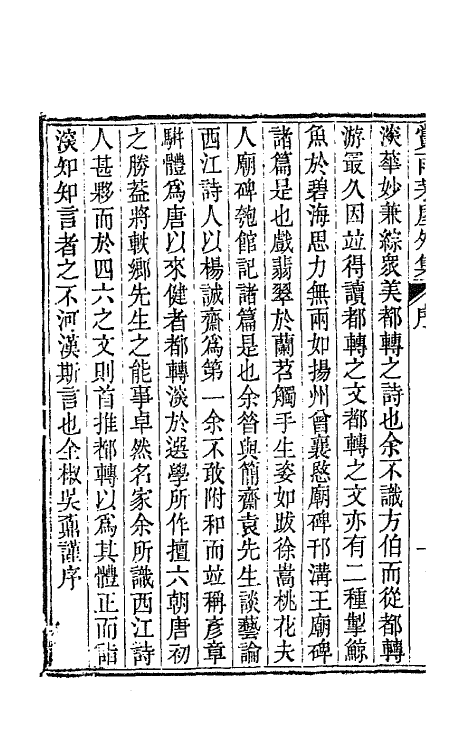 賞雨茅屋外集 序 一
淡華妙兼綜衆美都轉之詩也余不識方伯而從都轉
游最久因竝得讀都轉之文都轉之文亦有二種掣鯨
魚於碧海思力無兩如揚州曾襄愍廟碑邗溝王廟碑
諸篇是也戲翡翠於蘭苕觸手生姿如跋徐嵩桃花夫
人廟碑匏館記諸篇是也余昝與簡齋袁先生談藝論
西江詩人以楊誠齋爲第一余不敢附和而竝稱彥章
駢體爲唐以來健者都轉淡於選學所作擅六朝唐初
之勝葢將軼鄉先生之能事卓然名家余所識西江詩
人甚夥而於四六之文則首推都轉以爲其體正而詣
淡知知言者之不河漢斯言也全椒吳鼒謹序